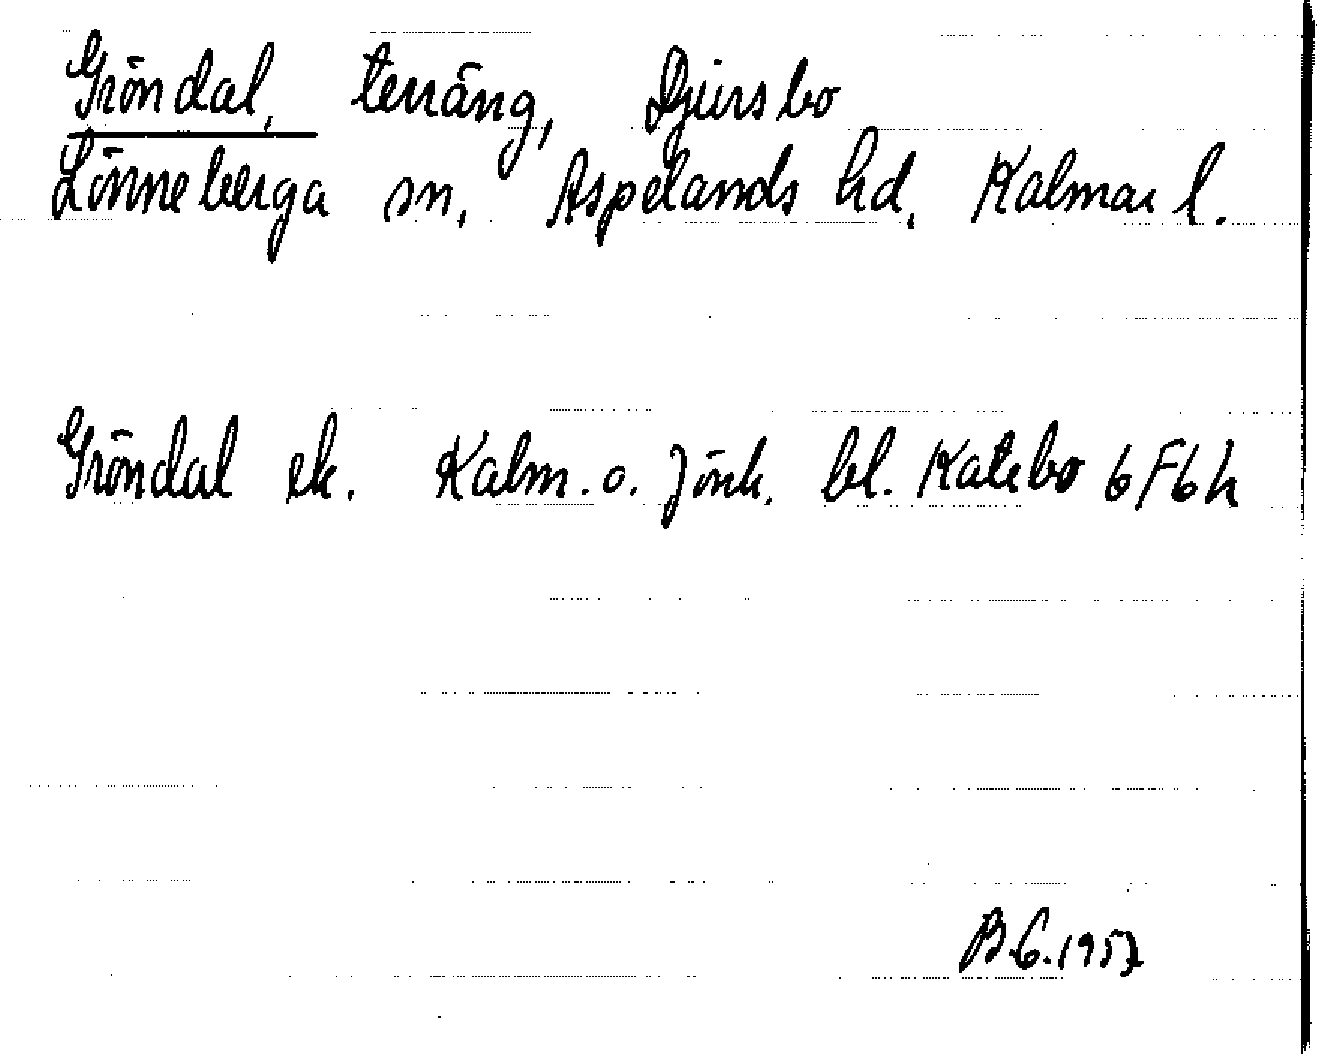 Gröndal, terräng, Djursbo
Lönneberga sn, Aspelands hd, Kalmar l.
Gröndal ek. Kalm. o. Jönk. bl. Katebo 6F6h
B.G. 1957